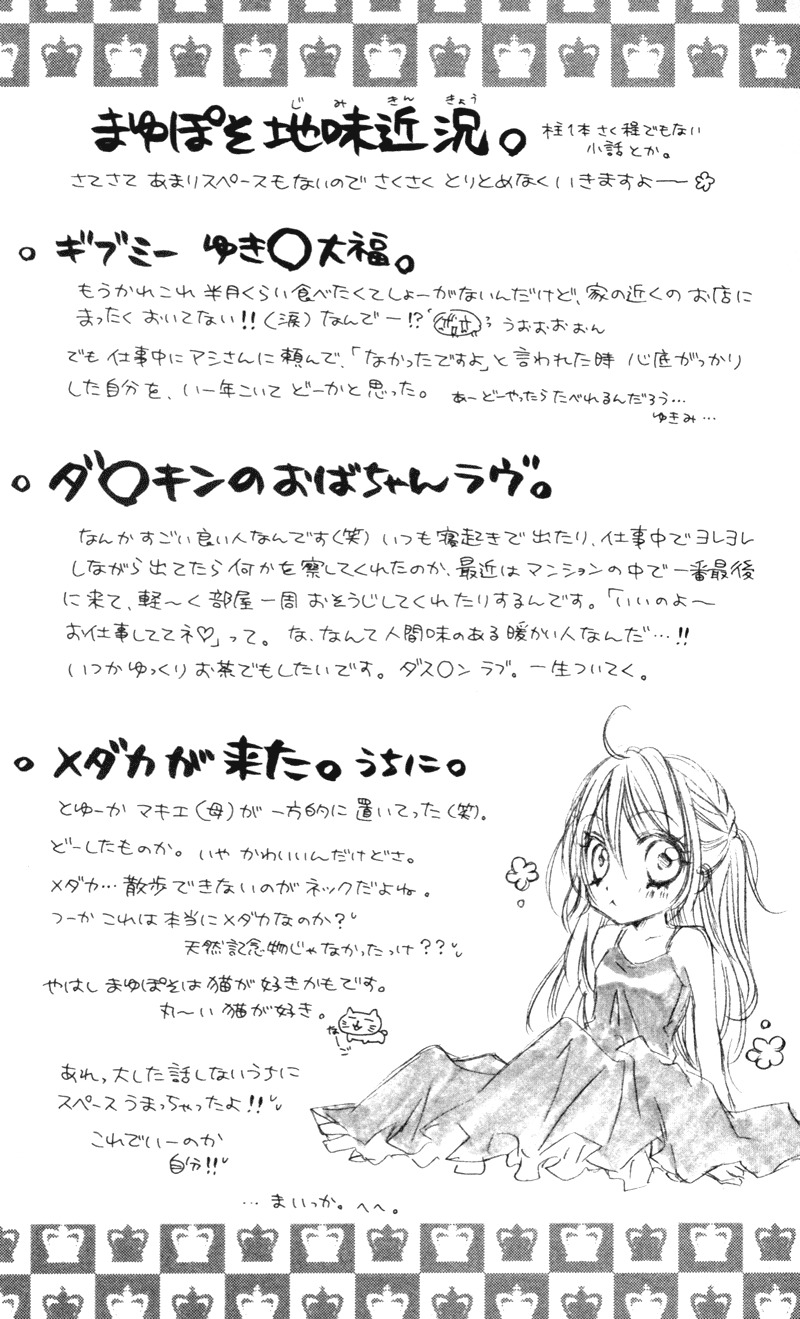 まゆぽそ地味近況。
じみきんきょう
柱1本さく程でもない
小話とか。
さてさて あまりスペースもないので さくさく とりとめなく いきますよー
。ギブミー ゆき○大福。
もうかれこれ 半月くらい食べたくてしょーがないんだけど、家の近くの お店に
まったく おいてない!!(涙)なんでー!? うおおおおん
でも 仕事中に アシさんに 頼んで、「なかったですよ」と言われた時 心底がっかり
した自分を、いー年こいて どーかと思った。 あーどーやったらたべれるんだろう…
ゆきみ…
。ダ○キンのおばちゃんラヴ。
なんか すごい 良い人なんです(笑) いつも 寝起きで 出たり、仕事中で ヨレヨレ
しながら 出てたら 何かを 察してくれたのか、最近は マンションの中で 一番最後
に来て、軽〜く 部屋一周 おそうじしてくれたりするんです。「いいのよ〜
お仕事しててネ♡」って。 な、なんて 人間味のある 暖かい人なんだ…!!
いつか ゆっくり お茶でもしたいです。 ダス○ン ラブ。一生ついてく。
。メダカが 来た。うちに。
とゆーか マキエ(母)が 一方的に 置いてった(笑)。
どーしたものか。 いや かわいいんだけどさ。
メダカ… 散歩できないのが ネックだよね。
つーか これは 本当に メダカなのか?
天然記念物じゃなかったっけ??
やはし まゆぽそは 猫が好きかもです。
丸〜い 猫が好き。
なーご
あれっ大した話しないうちに
スペースうまっちゃったよ!!
これでいーのか
自分!!
… まいっか。へへ。